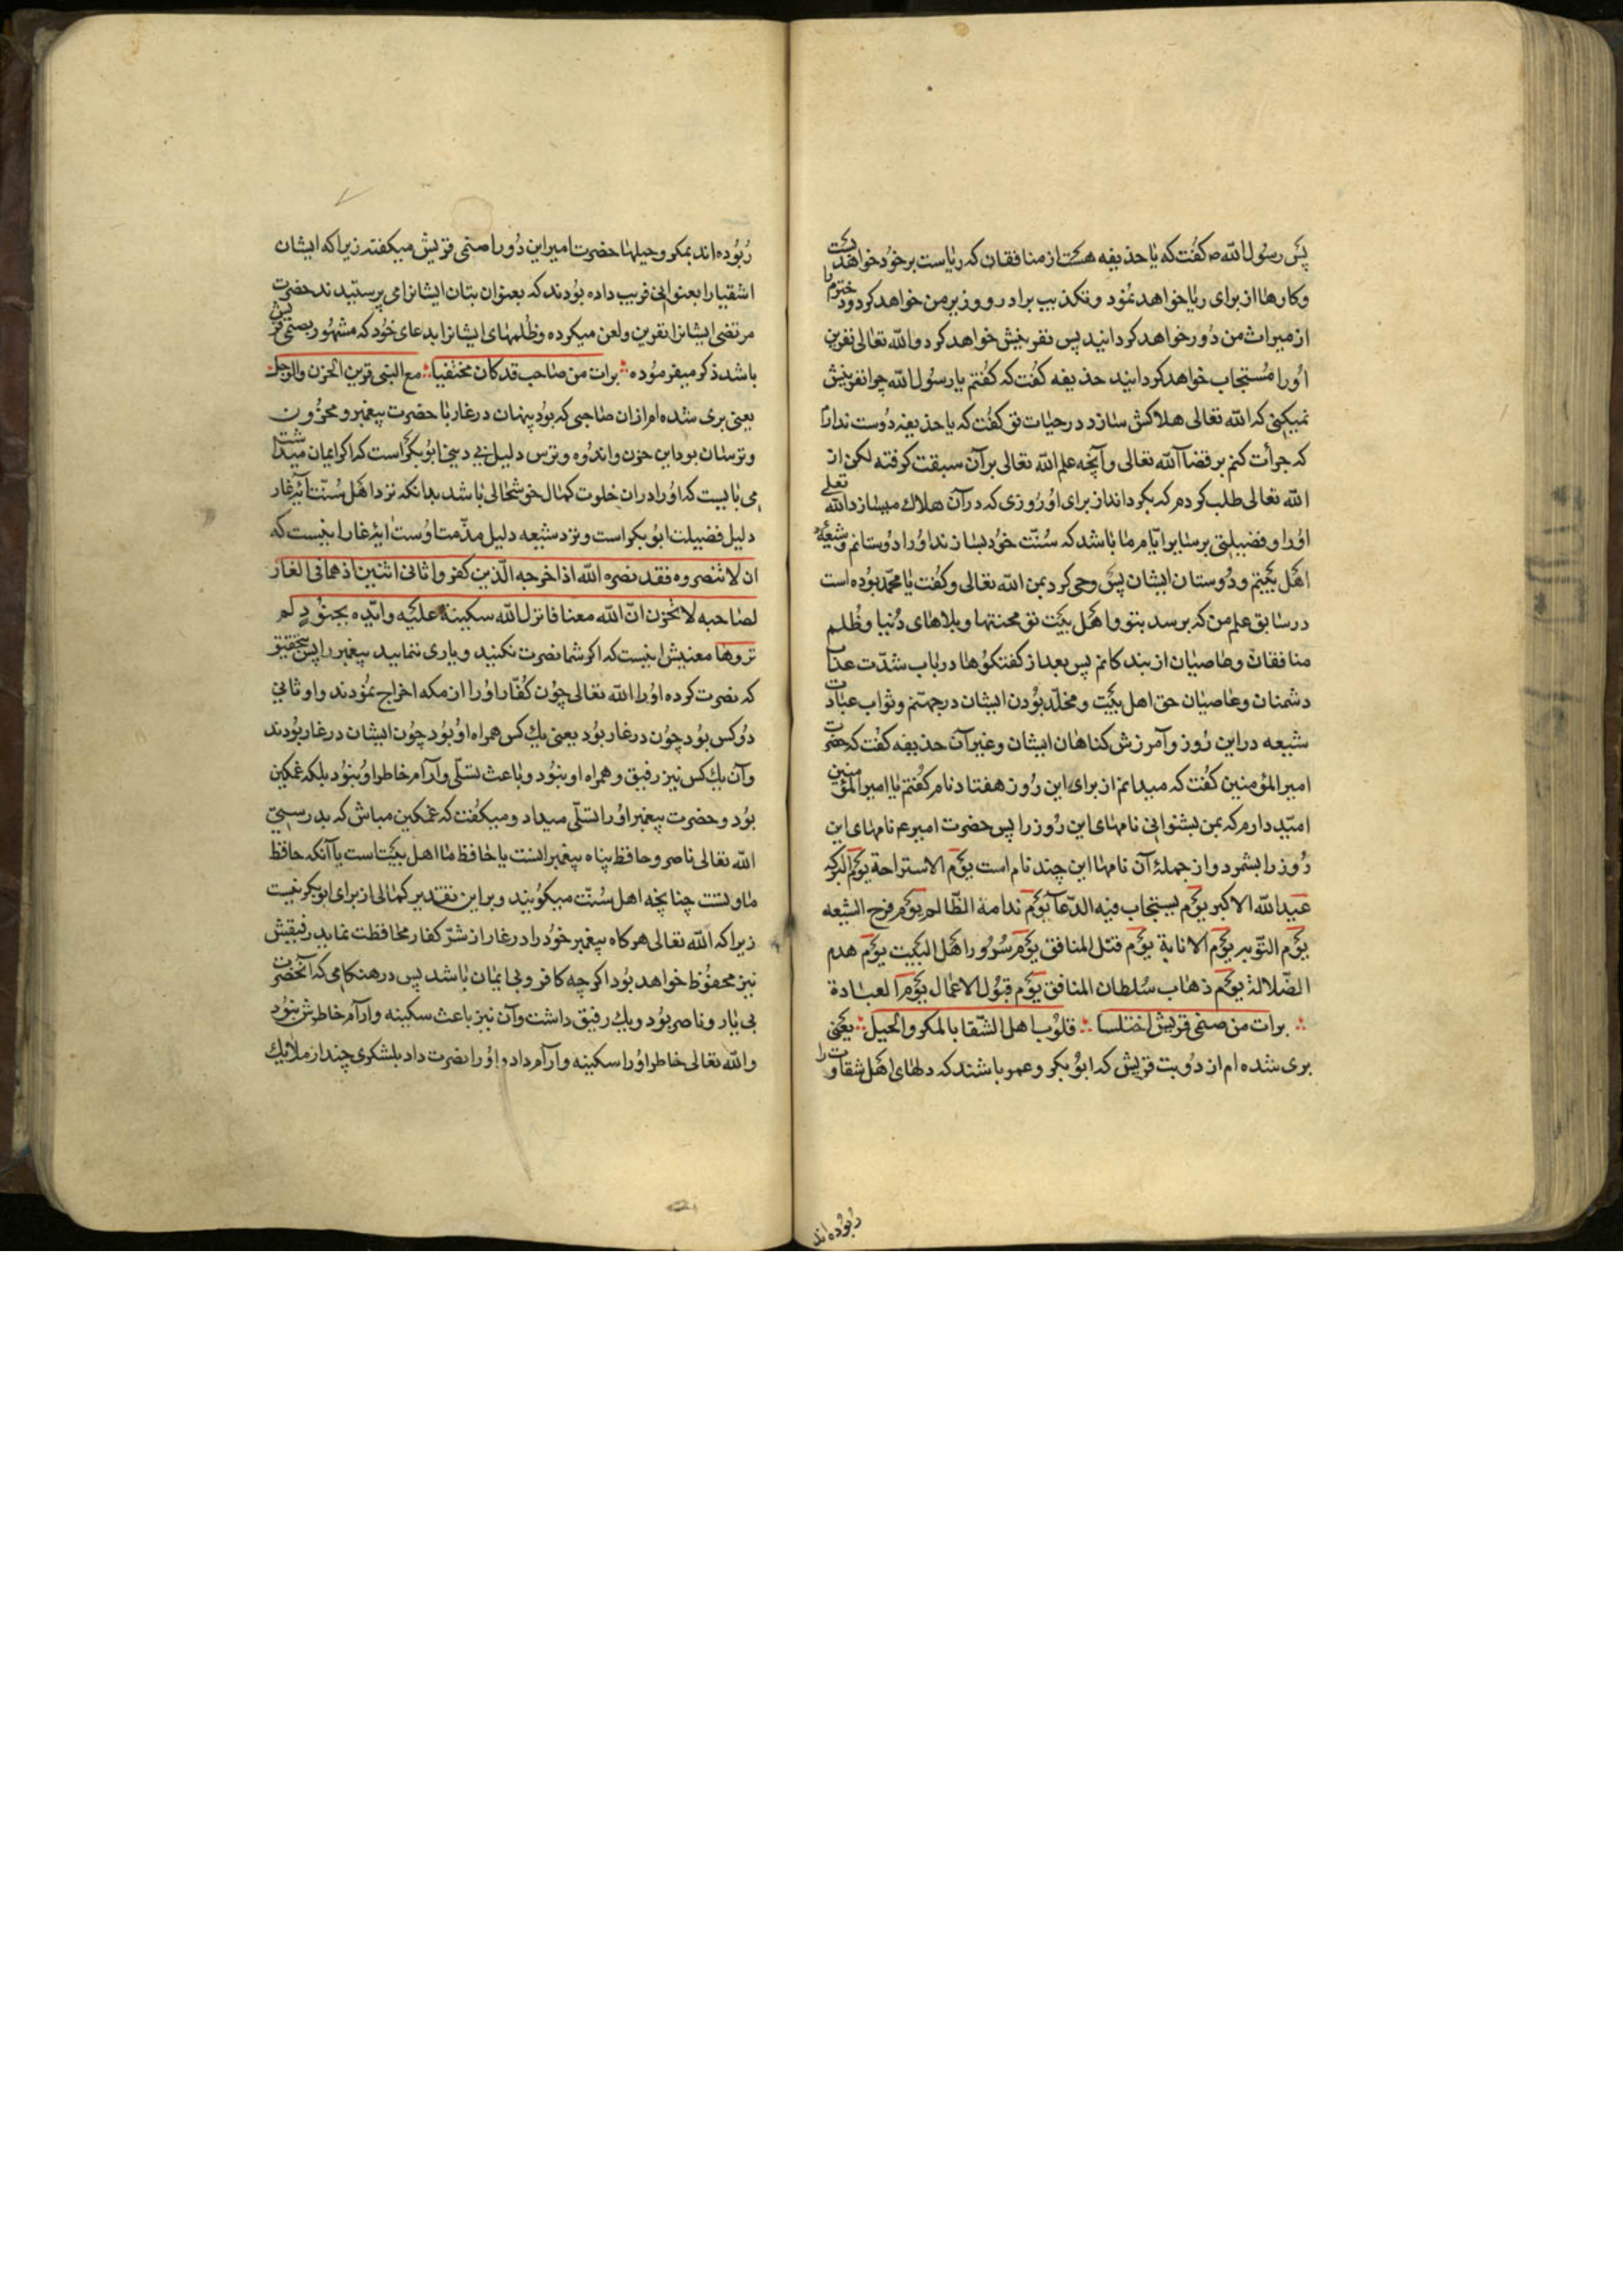 پس رسول الله ص کفت که یا حذیفه هست از منافقان که ریاست بر خود خواهد بست
وکارها از برای ریا خواهد نمود و تکذیب برادر و وزیر من خواهد کرد و دخترم را
از میراث من دور خواهد کردانید پس نفرینش خواهد کرد و الله تعالی نفرین
او را مستجاب خواهد کردانید حذیفه کفت که کفتم یا رسول الله چرا نفرینش
نمیکنی که الله تعالی هلاکش سازد در حیات تو کفت که یا حذیفه دوست ندارم
که جرأت کنم بر قضاآ الله تعالی و آنچه علم الله تعالی بر آن سبقت کرفته لکن از
الله تعالی طلب کردم که بکرداند از برای او روزی که در آن هلاک میسازد الله تعلی
او را و فضیلتی بر سایر ایام ما باشد که سنت خود بسازند او را دوستانم و شیعهٔ
اهل بیتم و دوستان ایشان پس وحی کرد بمن الله تعالی و کفت یا محمد بوده است
در سابق علم من که برسد بتو و اهل بیت تو محنتها و بلاهای دنیا و ظلم
منافقان و عاصیان از بندکانم پس بعد از کفتکوها در باب شدت عذاب
دشمنان و عاصیان حق اهل بیت و مخلد بودن ایشان در جهنم و ثواب عبادت
شیعه در این روز و آمرزش کناهان ایشان و غیر آن حذیفه کفت که حضرت
امیر المؤمنین کفت که میدانم از برای این روز هفتاد نام کفتم یا امیر المؤمنین
امید دارم که بمن بشنوانی نامهای این روز را پس حضرت امیر ع نامهای این
روز را بشمرد و از جملهٔ آن نامها این چند نام است یوم الاستراحة یوم البرکه
عید الله الاکبر یوم یستجاب فیه الدعآ یوم ندامة الظالم یوم فرح الشیعه
یوم التوبه یوم الانابة یوم قتل المنافق یوم سرور اهل البیت یوم هدم
الضلالة یوم ذهاب سلطان المنافق یوم قبول الاعمال یوم العبادة
برات من صنمی قریش اختلسا قلوب اهل الشقا بالمکر والحیل یعنی
بری شده ام از دو بت قریش که ابو بکر و عمر باشند که دلهای اهل شقاوت را
ربوده اند
ربوده اند بمکر و حیلها حضرت امیر این دو را صنمی قریش میکفته زیرا که ایشان
اشقیا را بعنوانی فریب داده بودند که بعنوان بتان ایشانرا می پرستیدند حضرت
مرتضی ایشانرا نفرین و لعن میکرده و ظلمهای ایشانرا بدعای خود که مشهور بصنمی قریش
باشد ذکر میفرموده برات من صاحب قد کان مختفیا مع النبی قرین الحزن والوجل
یعنی بری شده ام از ان صاحبی که بود پنهان در غار با حضرت پیغمبر و محزون
و ترسان بود این حزن و اندوه و ترس دلیل بی دینی ابو بکر است که اکر ایمان میداشت
می بایست که او را در ان خلوت کمال خوشحالی باشد بدانکه نزد اهل سنت آیهٔ غار
دلیل فضیلت ابو بکر است و نزد شیعه دلیل مذمت اوست ایهٔ غار اینست که
ان لا تنصروه فقد نصره الله اذ اخرجه الذین کفروا ثانی اثنین اذ هما فی الغار
لصاحبه لا تحزن ان الله معنا فانزل الله سکینته علیه وایده بجنود لم
تروها معنیش اینست که اکر شما نصرت نکنید و یاری ننمایید پیغمبر را پس بتحقیق
که نصرت کرده او را الله تعالی چون کفار او را از مکه اخراج نمودند و او ثانی
دو کس بود چون در غار بود یعنی یک کس همراه او بود چون ایشان در غار بودند
و آن یک کس نیز رفیق و همراه او نبود و باعث تسلی و آرام خاطر او نبود بلکه غمکین
بود و حضرت پیغمبر او را تسلی میداد و میکفت که غمکین مباش که بدرستی
الله تعالی ناصر و حافظ پناه پیغمبرانست یا حافظ ما اهل بیتست یا آنکه حافظ
ما و تست چنانچه اهل سنت میکویند و بر این تقدیر کمالی از برای ابو بکر نیست
زیرا که الله تعالی هر کاه پیغمبر خود را در غار از شر کفار محافظت نماید رفیقش
نیز محفوظ خواهد بود اکر چه کافر و بی ایمان باشد پس در هنکامی که آنحضرت
بی یار و ناصر بود و یک رفیق داشت و آن نیز باعث سکینه و آرام خاطرش نبود
و الله تعالی خاطر او را سکینه و آرام داد و او را نصرت داد بلشکری چند از ملائک